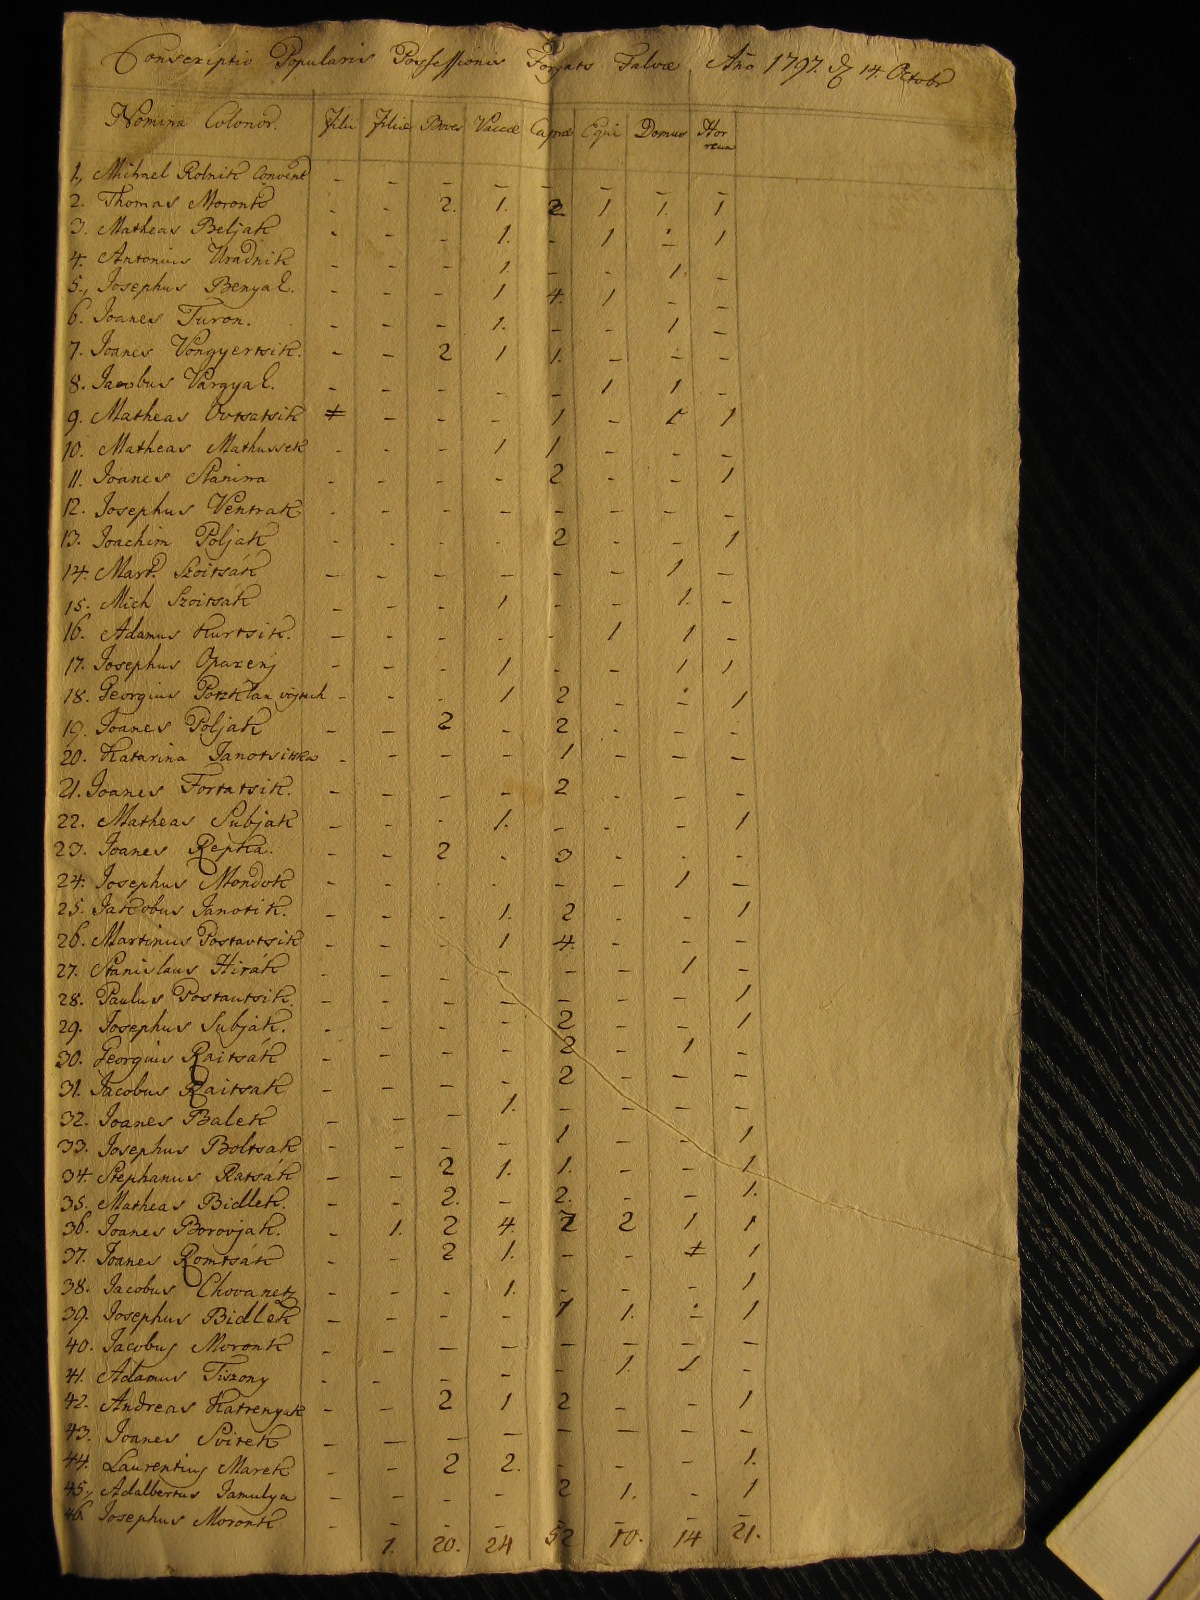 Conscriptio Popularis Possessionis Forgats Falvae Año 1797. d 14. Octobr
Nomina Colonor. Filii Filiae Boves Vaccae Caprae Equi Domus Horreum
1., Michael Rolnik Convent - - - - - - - -
2. Thomas Moronk - - 2. 1. 2 1 1. 1
3. Matheas Beljak - - - 1. - 1 - 1
4. Antonius Uradnik - - - 1. - - 1. -
5., Josephus Benyal. - - - 1 4. 1 - -
6. Joanes Turon. - - - 1. - - 1 -
7. Joanes Vongyertsik. - - 2 1 1. - - -
8. Jacobus Vargyal. - - - - - 1 1 -
9. Matheas Ovtsatsik - - - - 1 - 1 1
10. Matheas Mathussek - - - 1 1 - - -
11. Joanes Stanina - - - - 2 - - 1
12. Josephus Ventrak - - - - - - - -
13. Joachim Poljak - - - - 2 - - 1
14. Mart. Szoitsák - - - - - - 1 -
15. Mich Szoitsák - - - 1 - - 1. -
16. Adamus Kurtsik. - - - - - 1 1 -
17. Josephus Oparenj - - - 1 - - 1 1
18. Georgius - - - 1 2 - - 1
19. Joanes Poljak - - 2 - 2 - - -
20. Katarina Janotsitka - - - - 1 - - -
21. Joanes Fortatsik. - - - - 2 - - -
22. Matheas Subjak - - - 1. - - - 1
23. Joanes Repka. - - 2 - 3 - - -
24. Josephus Mondok - - - - - - 1 -
25. Jakobus Janotik. - - - 1. 2 - - 1
26. Martinus Postavtsik - - - 1 4. - - -
27. Stanislaus Hirák - - - - - - 1 -
28. Paulus Postautsik. - - - - - - - 1
29. Josephus Subják. - - - - 2 - - 1
30. Georgius Raitsák - - - - 2 - 1 -
31. Jacobus Raitsak - - - - 2 - - -
32. Joanes Balek - - - 1. - - - -
33. Josephus Boltsak - - - - 1 - - 1
34. Stephanus Ratsák - - 2 1. 1. - - 1
35., Matheas Bidlek. - - 2. - 2. - - 1.
36. Joanes Borovjak. - 1. 2 4 7 2 1 1
37. Joanes Romtsák - - 2 1. - - - 1
38. Jacobus Chovanetz - - - 1. - - - 1
39. Josephus Bidlek - - - - 1 1. - 1
40. Jacobus Moronk - - - - - - - -
41. Adamus Tiszony - - - - - 1. 1 -
42. Andreas Katrenyak - - 2 1 2 - - 1
43. Joanes Svitek - - - - - - - -
44. Laurentius Marek - - 2 2. - - - 1.
45., Adalbertus Jamulya - - - - 2 1. - 1
46. Josephus Moronk - - - - - - - -
1. 20. 24 52 10. 14 21.